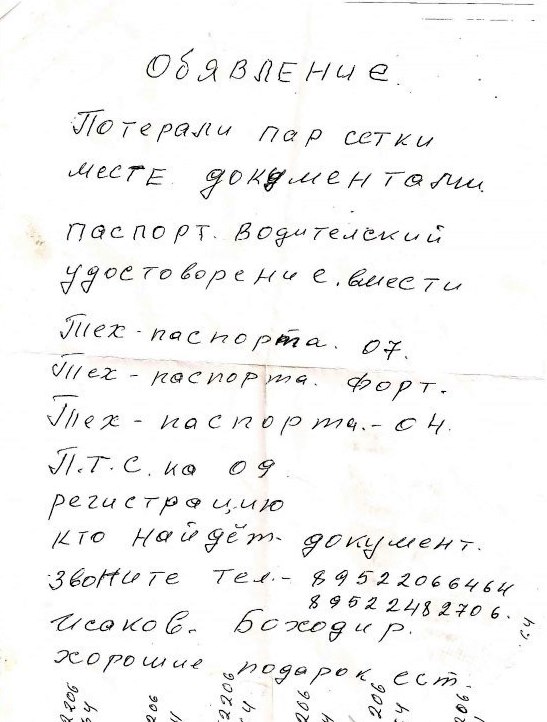 Обявление.
Потерали пар сетки
месте документами.
паспорт. водителский
удостоворение. вмести
Тех-паспорта. 07.
Тех-паспорта. форт.
Тех-паспорта.-04.
П.Т.С. на 09
регистрацию
кто найдёт документ.
звоните тел.- 89522066464
89522482706.
Исаков. Боходир.
хорошие подарок ест.